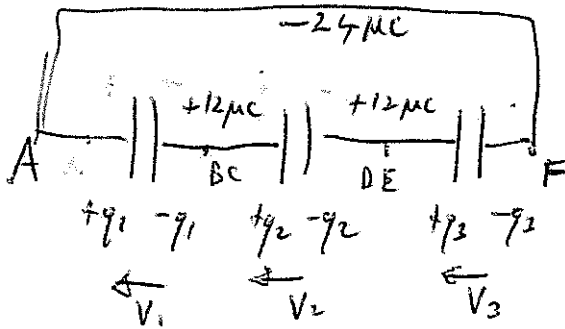 -24 μC
+12μC +12μC
A BC DE F
+q1 -q1 +q2 -q2 +q3 -q3
V1 V2 V3